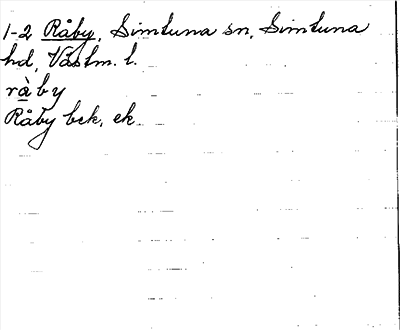 1-2 Råby, Simtuna sn, Simtuna
hd, Västm. l.
rὰby
Råby bck, ek